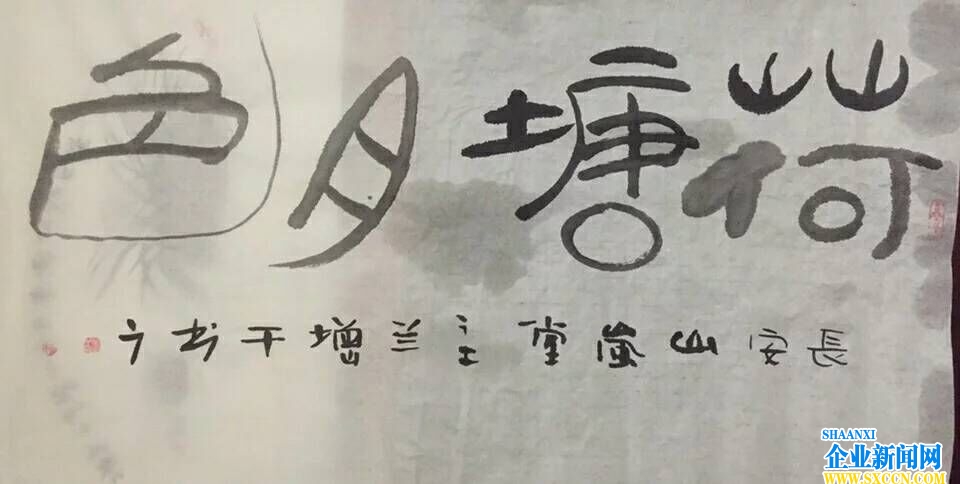 荷塘月色
長安山嵐堂主兰增干书
SHAANXI
企业新闻网
WWW.SXCCN.COM